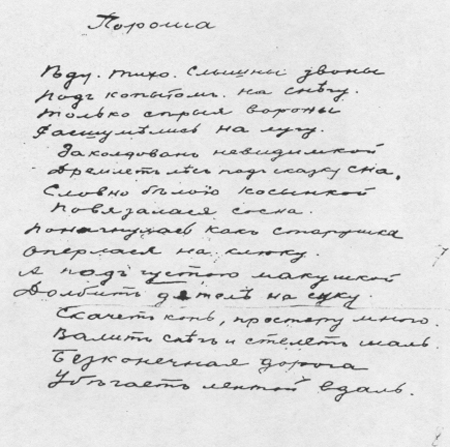 Пороша
Ѣду. Тихо. Слышны звоны
Подъ копытомъ на снѣгу.
Только сѣрыя вороны
Расшумѣлись на лугу.
Заколдованъ невидимкой
Дремлетъ лѣсъ подъ сказку сна.
Словно бѣлою косынкой
Повязалася сосна.
Понагнулась какъ старушка
Оперлася на клюку.
А подъ густою макушкой
Долбитъ дятелъ на суку.
Скачетъ конь, простору много.
Валитъ снѣгъ и стелетъ шаль.
Безконечная дорога
Убѣгаетъ лентой вдаль.